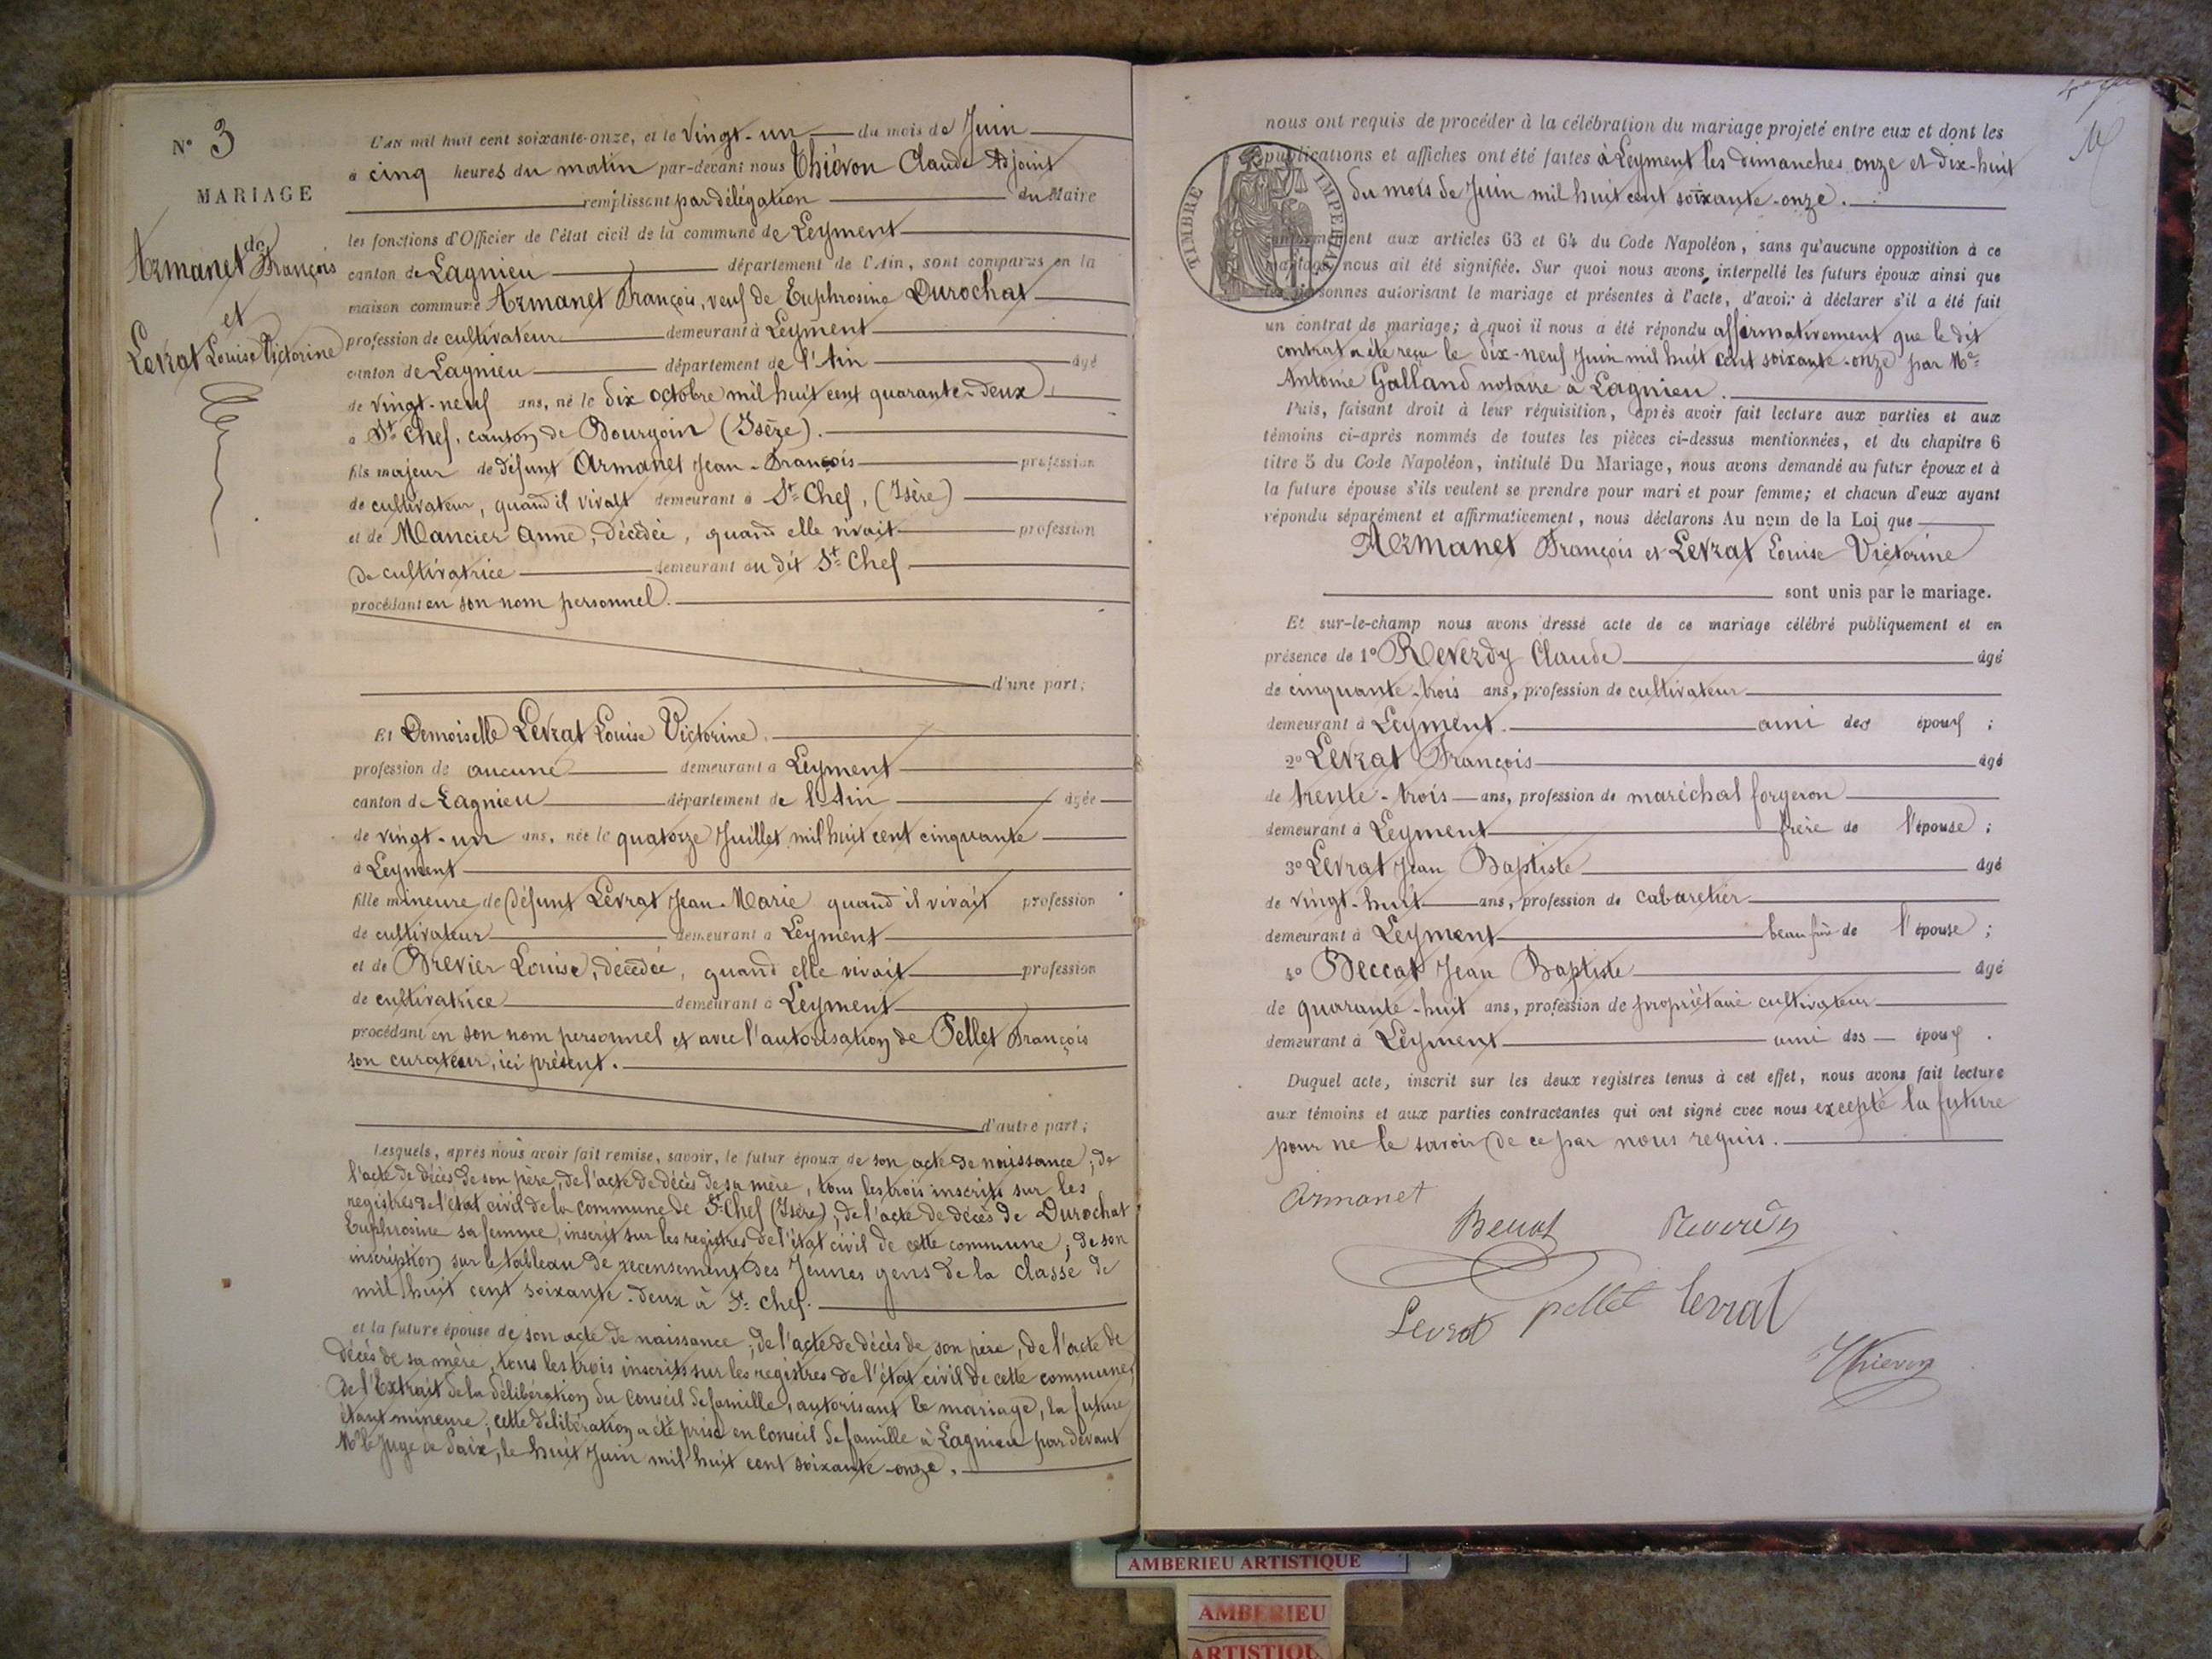 N° 3
MARIAGE
de
Armanet François
et
Levrat Louise Victorine
L'an mil huit cent soixante-onze, et le vingt-un du mois de Juin
à cinq heures du matin par-devant nous Thiévon Claude Adjoint
remplissant par délégation du Maire
les fonctions d'Officier de l'état civil de la commune de Leyment
canton de Lagnieu département de l'Ain, sont comparus en la
maison commune Armanet François, veuf de Euphrosine Durochat
profession de cultivateur demeurant à Leyment
canton de Lagnieu département de l'Ain âgé
de vingt-neuf ans, né le dix octobre mil huit cent quarante-deux
à St Chef, canton de Bourgoin (Isère).
fils majeur de défunt Armanet Jean-François profession
de cultivateur, quand il vivait demeurant à St Chef, (Isère)
et de Mancier Anne, décédée, quand elle vivait profession
de cultivatrice demeurant au dit St Chef
procédant en son nom personnel.
d'une part;
Et Demoiselle Levrat Louise Victorine.
profession de aucune demeurant à Leyment
canton de Lagnieu département de l'Ain âgée
de vingt-un ans, née le quatorze Juillet mil huit cent cinquante
à Leyment
fille mineure de défunt Levrat Jean-Marie quand il vivait profession
de cultivateur demeurant à Leyment
et de Brevier Louise, décédée, quand elle vivait profession
de cultivatrice demeurant à Leyment
procédant en son nom personnel et avec l'autorisation de Pellet François
son curateur, ici présent.
d'autre part;
Lesquels, après nous avoir fait remise, savoir, le futur époux de son acte de naissance; de
l'acte de décès de son père, de l'acte de décès de sa mère, tous les trois inscrits sur les
registres de l'état civil de la commune de St Chef (Isère); de l'acte de décès de Durochat
Euphrosine sa femme, inscrit sur les registres de l'état civil de cette commune; de son
inscription sur le tableau de recensement des Jeunes gens de la classe de
mil huit cent soixante-deux à St Chef.
et la future épouse de son acte de naissance; de l'acte de décès de son père, de l'acte de
décès de sa mère, tous les trois inscrits sur les registres de l'état civil de cette commune;
de l'Extrait de la délibération du Conseil de famille, autorisant le mariage, la future
étant mineure; cette délibération a été prise en Conseil de famille à Lagnieu par devant
Mr le Juge de Paix, le huit Juin mil huit cent soixante-onze.
nous ont requis de procéder à la célébration du mariage projeté entre eux et dont les
publications et affiches ont été faites à Leyment les dimanches onze et dix-huit
du mois de Juin mil huit cent soixante-onze.
TIMBRE IMPERIAL
conformément aux articles 63 et 64 du Code Napoléon, sans qu'aucune opposition à ce
mariage nous ait été signifiée. Sur quoi nous avons interpellé les futurs époux ainsi que
les personnes autorisant le mariage et présentes à l'acte, d'avoir à déclarer s'il a été fait
un contrat de mariage; à quoi il nous a été répondu affirmativement que le dit
contrat a été reçu le dix-neuf Juin mil huit cent soixante-onze par Me
Antoine Galland notaire à Lagnieu.
Puis, faisant droit à leur réquisition, après avoir fait lecture aux parties et aux
témoins ci-après nommés de toutes les pièces ci-dessus mentionnées, et du chapitre 6
titre 5 du Code Napoléon, intitulé Du Mariage, nous avons demandé au futur époux et à
la future épouse s'ils veulent se prendre pour mari et pour femme; et chacun d'eux ayant
répondu séparément et affirmativement, nous déclarons Au nom de la Loi que
Armanet François et Levrat Louise Victorine
sont unis par le mariage.
Et sur-le-champ nous avons dressé acte de ce mariage célébré publiquement et en
présence de 1° Reverdy Claude âgé
de cinquante-trois ans, profession de cultivateur
demeurant à Leyment. ami des époux;
2° Levrat François âgé
de trente-trois ans, profession de maréchal forgeron
demeurant à Leyment frère de l'épouse;
3° Levrat Jean Baptiste âgé
de vingt-huit ans, profession de cabaretier
demeurant à Leyment beau frère de l'épouse;
4° Beccat Jean Baptiste âgé
de quarante-huit ans, profession de propriétaire cultivateur
demeurant à Leyment ami des époux.
Duquel acte, inscrit sur les deux registres tenus à cet effet, nous avons fait lecture
aux témoins et aux parties contractantes qui ont signé avec nous excepté la future
pour ne le savoir de ce par nous requis.
Armanet
Reverdy
Levrat pellet levrat
Thievon
AMBERIEU ARTISTIQUE
AMBERIEU
ARTISTIQU